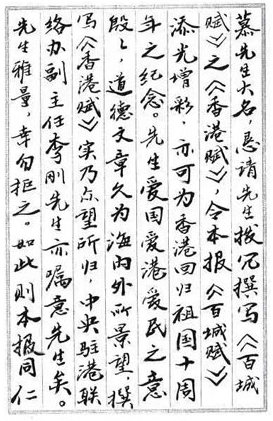 慕先生大名,恳请先生拨冗撰写《《百城
赋》》之《《香港赋》》,令本报《《百城赋》》
添光增彩,亦可为香港回归祖国十周
年之纪念。先生爱国爱港爱民之意
殷殷,道德文章久为海内外所景望,撰
写《《香港赋》》实乃众望所归,中央驻港联
络办副主任李刚先生亦嘱意先生矣。
先生雅量,幸勿拒之。如此则本报同仁